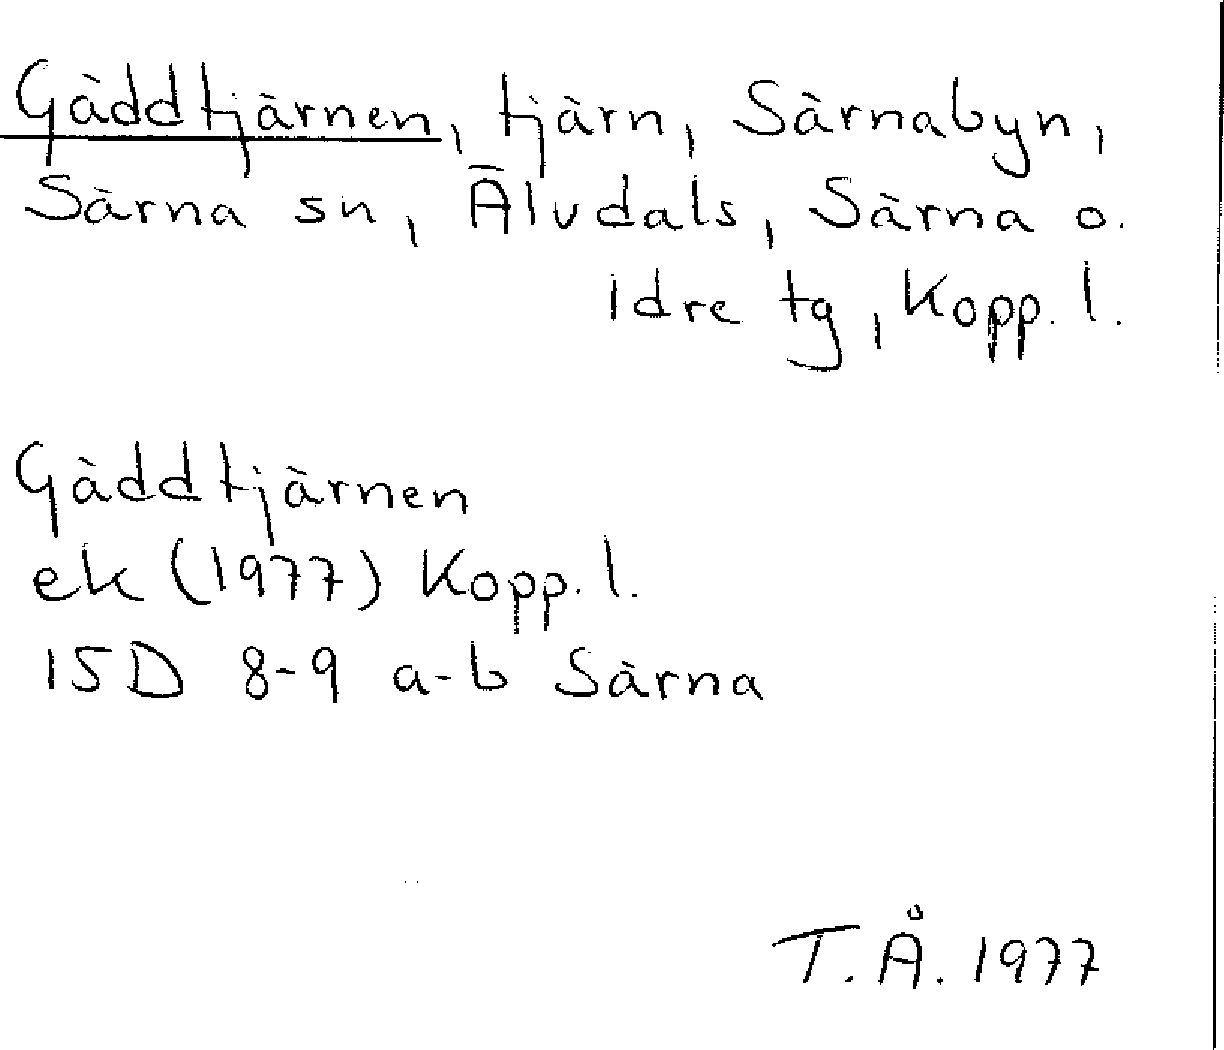 Gäddtjärnen, tjärn, Särnabyn,
Särna sn, Älvdals, Särna o.
Idre tg, Kopp. l.
Gäddtjärnen
ek (1977) Kopp. l.
15D 8-9 a-b Särna
T.Å. 1977